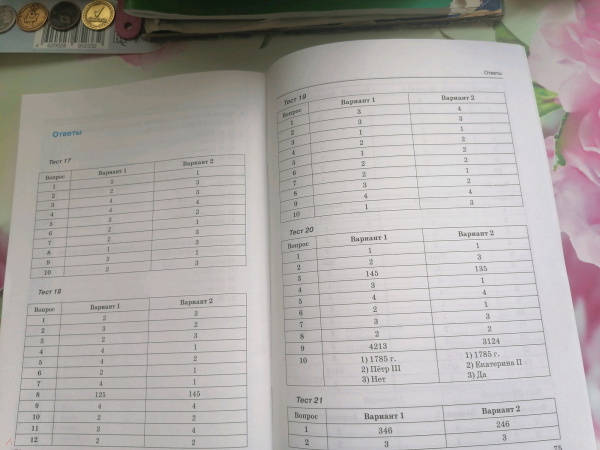 Ответы
Тест 17
Вопрос Вариант 1 Вариант 2
1 3 1
2 2 3
3 4 3
4 4 4
5 3 3
6 2 1
7 2 3
8 1 3
9 3 1
10 2 3
Тест 18
Вопрос Вариант 1 Вариант 2
1 2 3
2 3 2
3 2 3
4 4 1
5 4 2
6 2 1
7 4 1
8 125 145
9 4 4
10 2 2
11 3 4
12 2 2
Ответы
Тест 19
Вопрос Вариант 1 Вариант 2
1 3 4
2 3 3
3 1 1
4 2 2
5 1 2
6 2 2
7 2 1
8 3 2
9 4 4
10 1 3
Тест 20
Вопрос Вариант 1 Вариант 2
1 1 1
2 2 3
3 145 135
4 3 1
5 4 4
6 2 1
7 3 3
8 2 2
9 4213 3124
10 1) 1785 г. 1) 1785 г.
2) Пётр III 2) Екатерина II
3) Нет 3) Да
Тест 21
Вопрос Вариант 1 Вариант 2
1 346 246
2 3 3
75